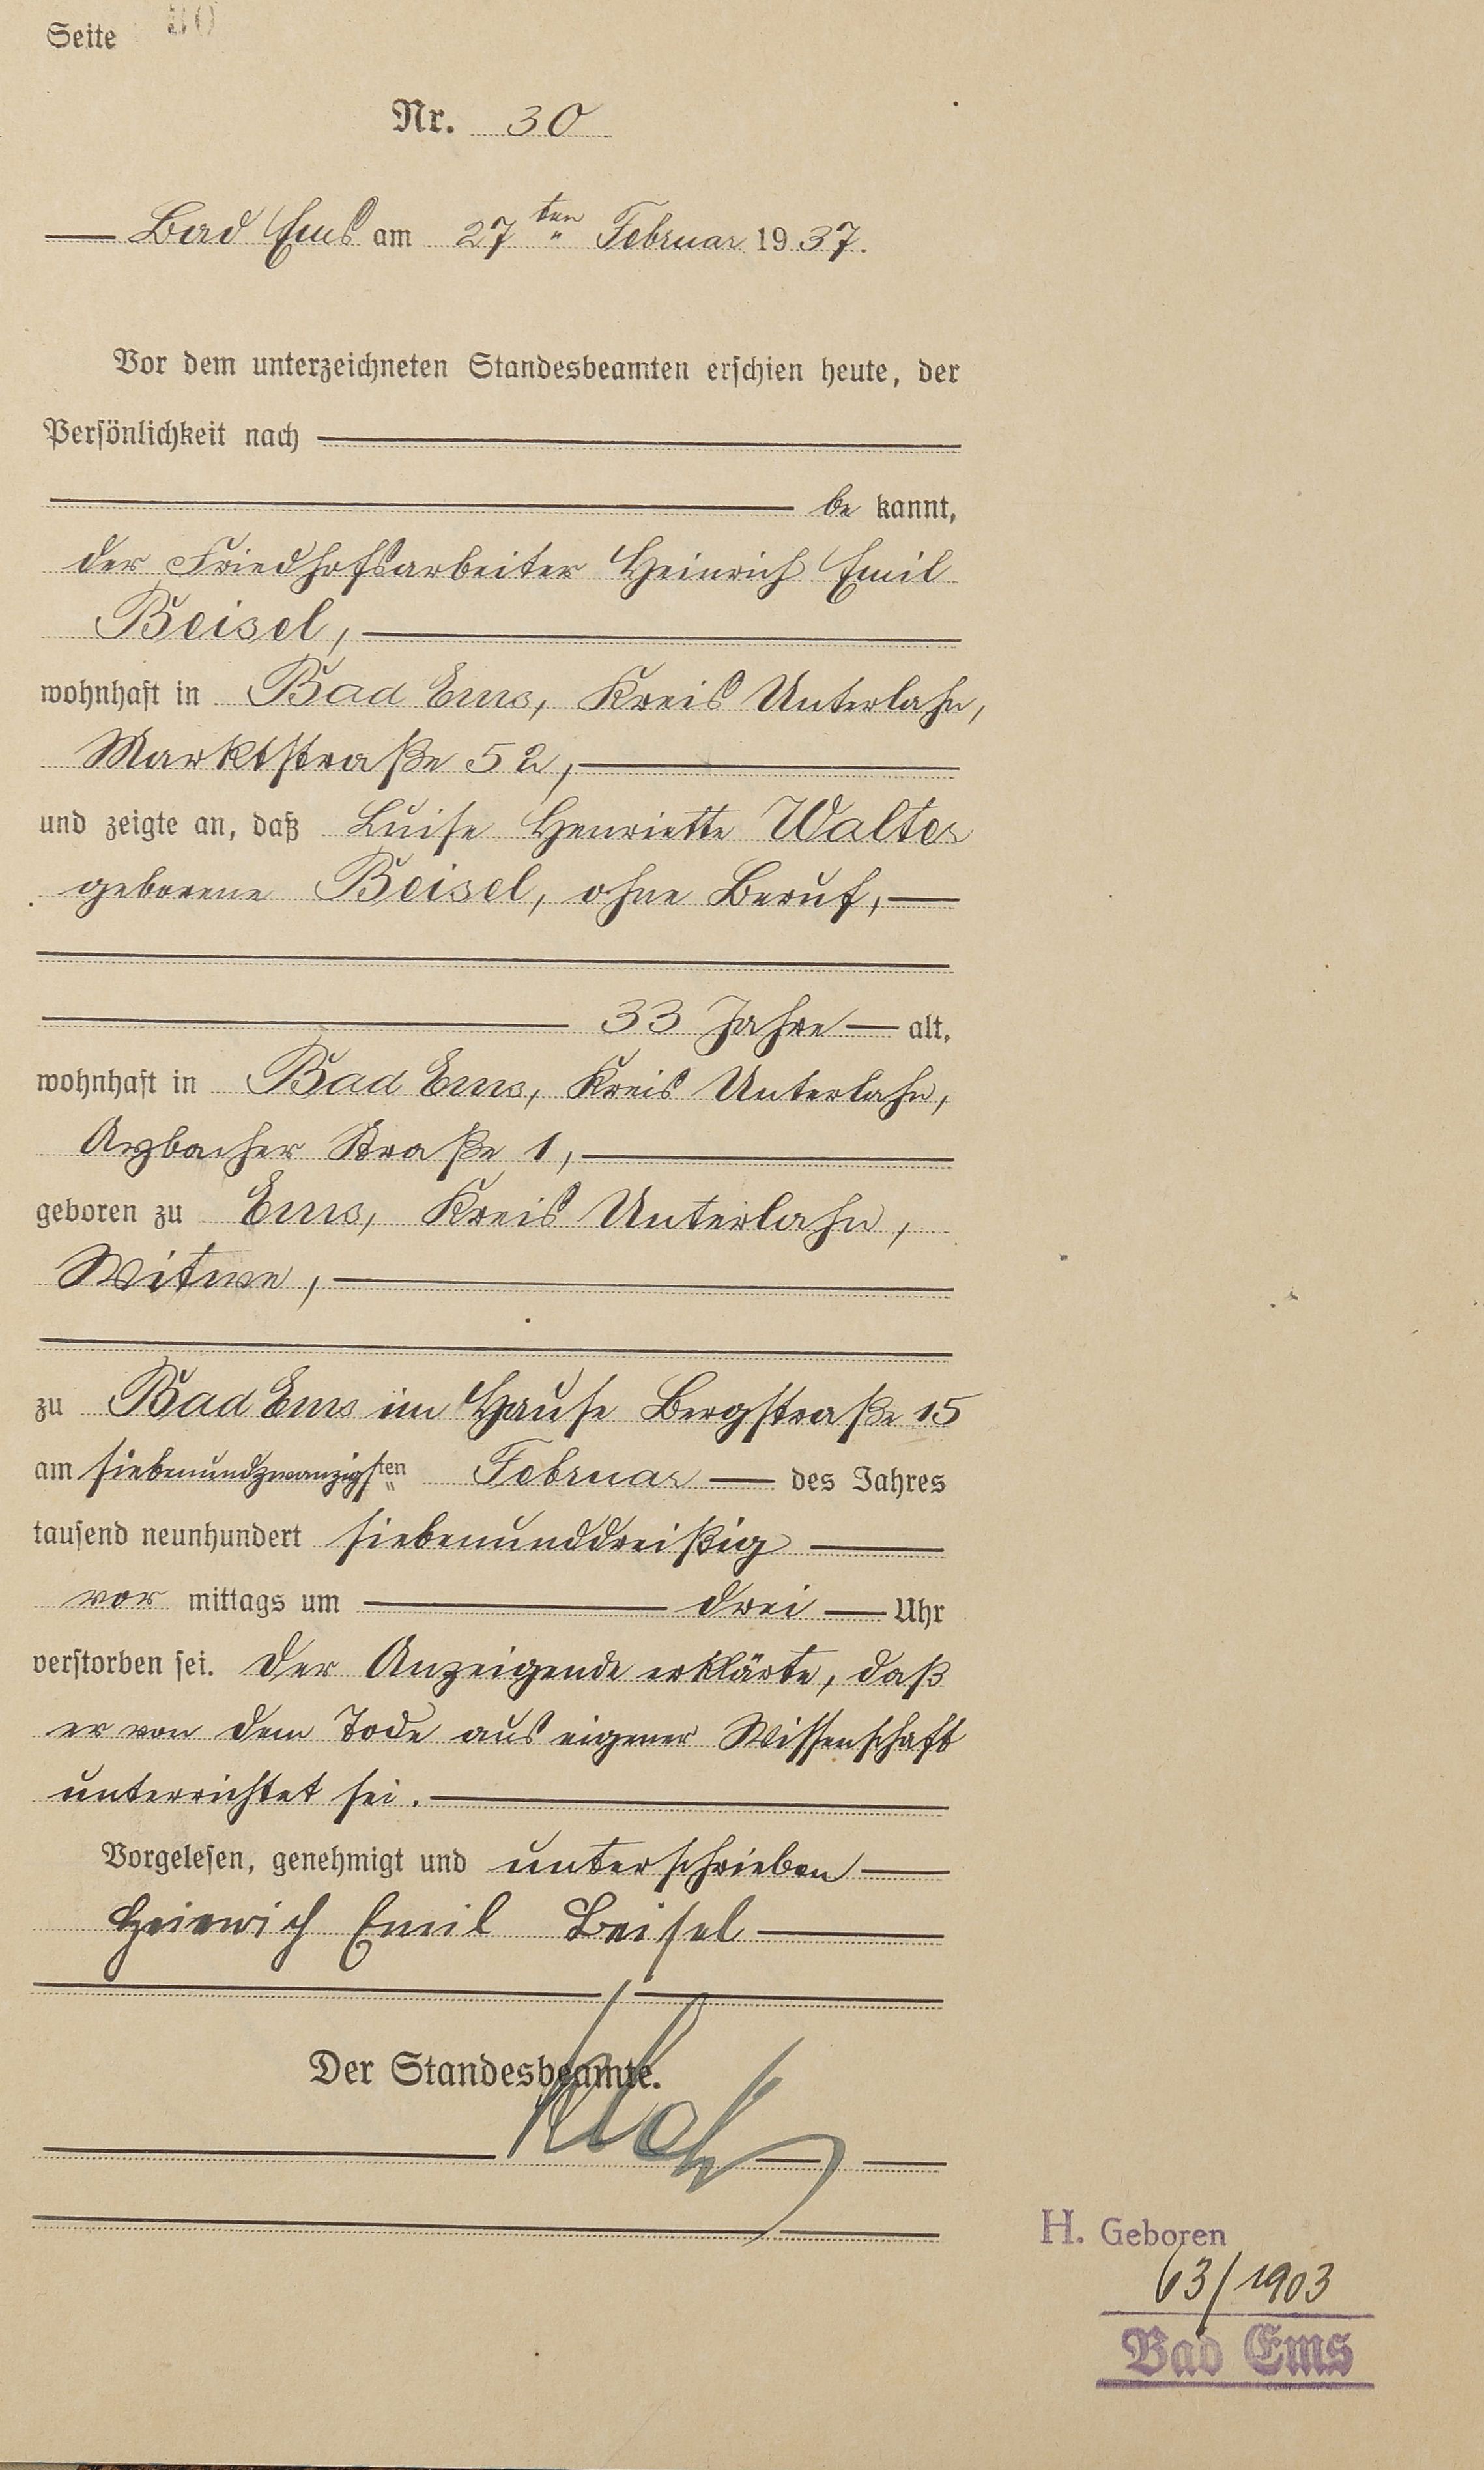 Seite 30
Nr. 30
Bad Ems am 27ten Februar 1937.
Vor dem unterzeichneten Standesbeamten erschien heute, der
Persönlichkeit nach
be kannt,
der Friedhofsarbeiter Heinrich Emil
Beisel,
wohnhaft in Bad Ems, Kreis Unterlahn,
Marktstraße 52,
und zeigte an, daß Luise Henriette Walter
geborene Beisel, ohne Beruf,
33 Jahre alt,
wohnhaft in Bad Ems, Kreis Unterlahn,
Arzbacher Straße 1,
geboren zu Ems, Kreis Unterlahn,
Witwe,
zu Bad Ems im Hause Bergstraße 15
am siebenundzwanzigsten Februar des Jahres
tausend neunhundert siebenunddreißig
vor mittags um drei Uhr
verstorben sei. Der Anzeigende erklärte, daß
er von dem Tode aus eigener Wissenschaft
unterrichtet sei.
Vorgelesen, genehmigt und unterschrieben
Heinrich Emil Beisel
Der Standesbeamte.
H. Geboren
63/1903
Bad Ems